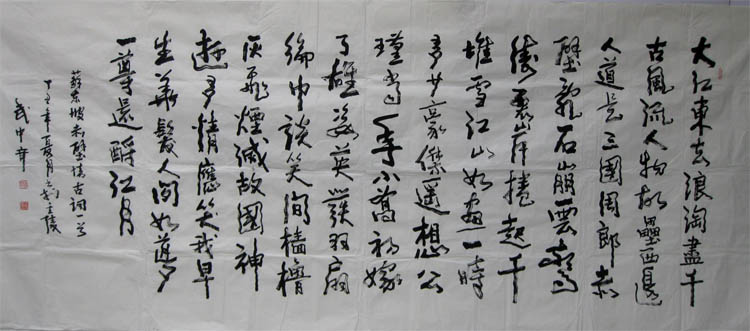 大江東去浪淘盡千
古風流人物故壘西邊
人道是三國周郎赤
壁亂石崩雲驚
濤裂岸捲起千
堆雪江山如畫一時
多少豪傑遙想公
瑾當年小喬初嫁
了雄姿英發羽扇
綸巾談笑間檣櫓
灰飛煙滅故國神
遊多情應笑我早
生華髮人間如夢
一尊還酹江月
蘇東坡赤壁懷古詞一首
年夏月
武中